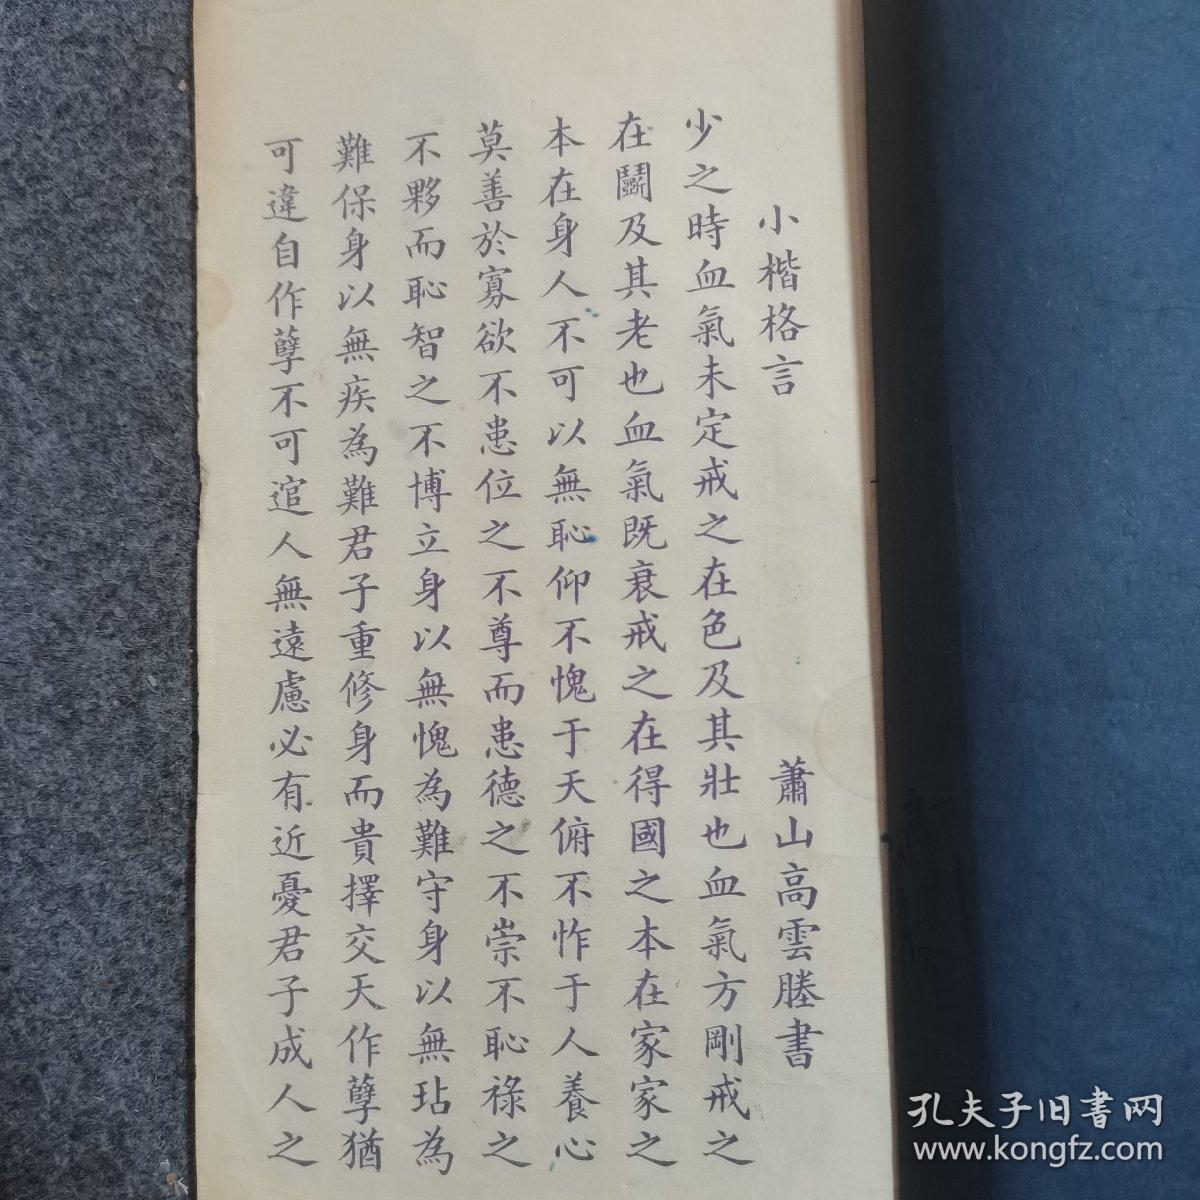 小楷格言 蕭山高雲塍書
少之時血氣未定戒之在色及其壯也血氣方剛戒之
在鬭及其老也血氣既衰戒之在得國之本在家家之
本在身人不可以無恥仰不愧于天俯不怍于人養心
莫善於寡欲不患位之不尊而患德之不崇不恥祿之
不夥而恥智之不博立身以無愧為難守身以無玷為
難保身以無疾為難君子重修身而貴擇交天作孽猶
可違自作孽不可逭人無遠慮必有近憂君子成人之
孔夫子旧書网
www.kongfz.com